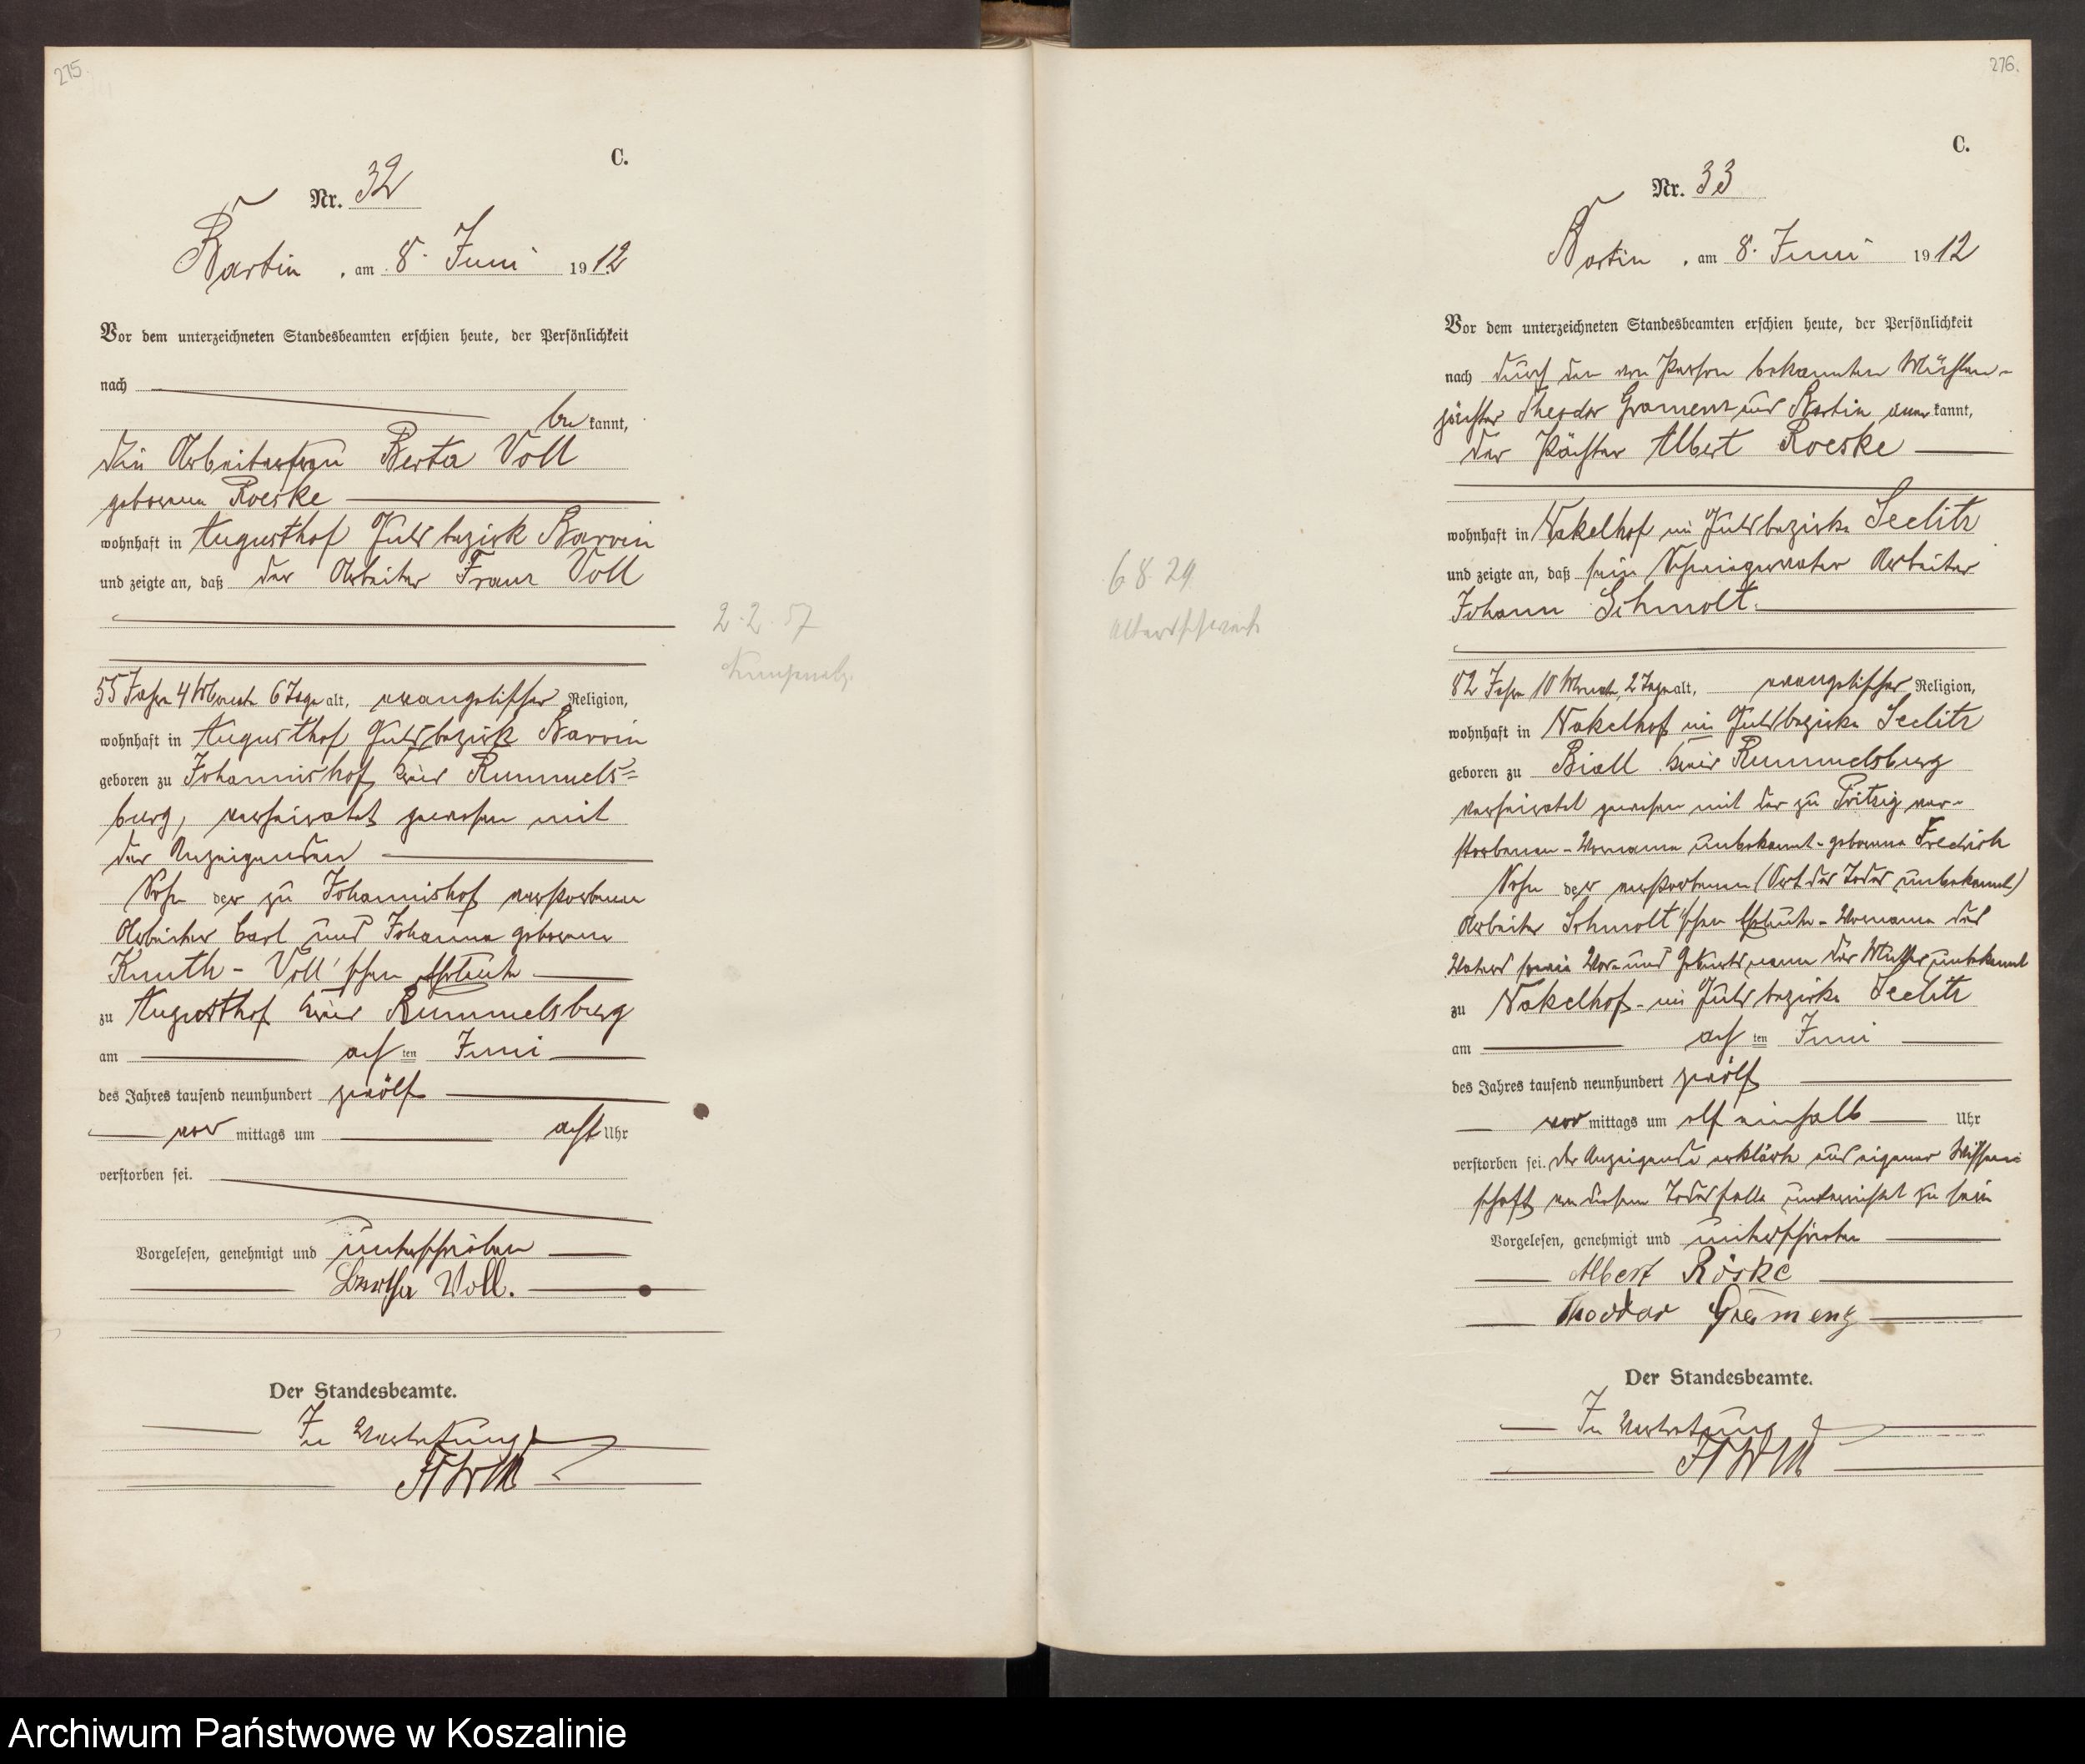 275
C.
Nr. 32
Bartin, am 8. Juni 1912
Vor dem unterzeichneten Standesbeamten erschien heute, der Persönlichkeit
nach
be kannt,
die Arbeiterfrau Berta Voll
geborene Roeske
wohnhaft in Augusthof Gutsbezirk Barvin
und zeigte an, daß der Arbeiter Franz Voll
55 Jahre 4 Monate 6 Tage alt, evangelischer Religion,
wohnhaft in Augusthof Gutsbezirk Barvin
geboren zu Johannishof Kreis Rummels=
burg, verheiratet gewesen mit
der Anzeigenden
Sohn der zu Johannishof verstorbenen
Arbeiter Carl und Johanna geborene
Knuth - Voll'schen Eheleute
zu Augusthof Kreis Rummelsburg
am acht ten Juni
des Jahres tausend neunhundert zwölf
vor mittags um acht Uhr
verstorben sei.
Vorgelesen, genehmigt und unterschrieben
Bertha Voll.
Der Standesbeamte.
In Vertretung
2.2.57
276.
C.
Nr. 33
Bartin, am 8. Juni 1912
Vor dem unterzeichneten Standesbeamten erschien heute, der Persönlichkeit
nach durch den von Person bekannten Mühlen-
pächter Theodor Gramenz aus Bartin aner kannt,
der Pächter Albert Roeske
wohnhaft in Nakelhof im Gutsbezirke Seelitz
und zeigte an, daß sein Schwiegervater Arbeiter
Johann Schmolt.
82 Jahre 10 Monate, 2 Tage alt, evangelischer Religion,
wohnhaft in Nakelhof im Gutsbezirke Seelitz
geboren zu Biall Kreis Rummelsburg
verheiratet gewesen mit der zu Pritzig ver-
storbenen - Vorname unbekannt - geborene Fredrich
Sohn der verstorbenen (Ort des Todes unbekannt)
Arbeiter Schmolt'schen Eheleute - Vorname des
Vaters sowie Vor- und Geburtsname der Mutter unbekannt
zu Nakelhof - im Gutsbezirke Seelitz
am acht ten Juni
des Jahres tausend neunhundert zwölf
vor mittags um elf einhalb Uhr
verstorben sei. Der Anzeigende erklärte aus eigener Wissen=
schaft von diesem Todesfalle unterrichtet zu sein
Vorgelesen, genehmigt und unterschrieben
Albert Röske
Theodor Gramenz
Der Standesbeamte.
In Vertretung
6 8. 29
Altersschwäche
Archiwum Państwowe w Koszalinie